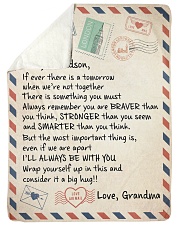 dson,
If ever there is a tomorrow
when we're not together
There is something you must
Always remember you are BRAVER than
you think, STRONGER than you seem
and SMARTER than you think.
But the most important thing is,
even if we are apart
I'LL ALWAYS BE WITH YOU
Wrap yourself up in this and
consider it a big hug!!
Love, Grandma